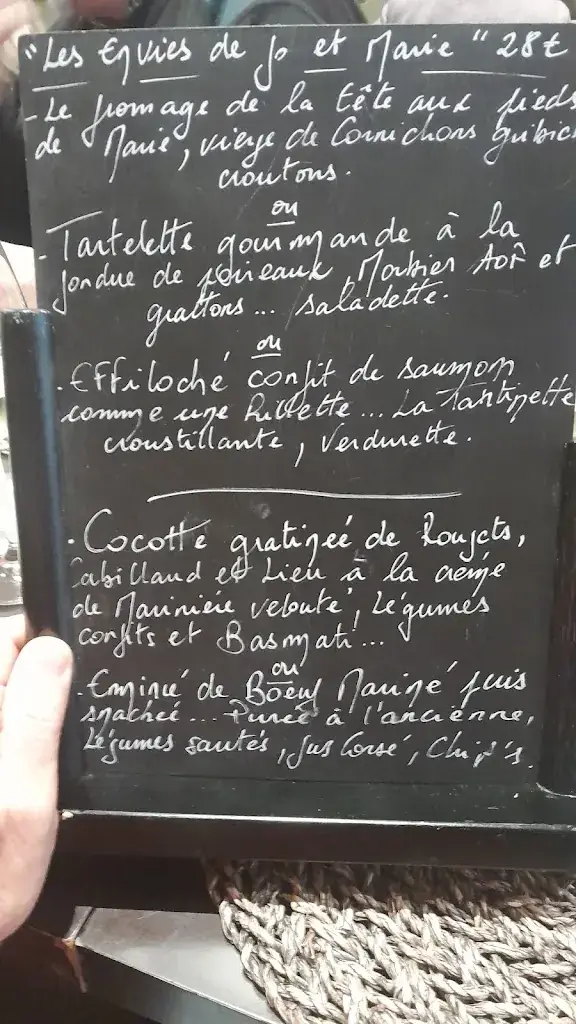 "Les Envies de Jo et Marie" 28€
- Le fromage de la tête aux pieds
de Marie, vierge de Cornichons gribic
croutons.
ou
- Tartelette gourmande à la
fondue de poireaux, Morbier AOP et
grattons... saladette.
ou
. Effiloché confit de saumon
comme une Rillette... La Tartinette
croustillante, Verdurette.
. Cocotte gratinée de Rougets,
Cabillaud et Lieu à la crème
de Marinière velouté, Légumes
confits et Basmati...
ou
. Emincé de Boeuf Mariné puis
snackée... Purée à l'ancienne,
Légumes sautés, Jus Corsé, Chip's.